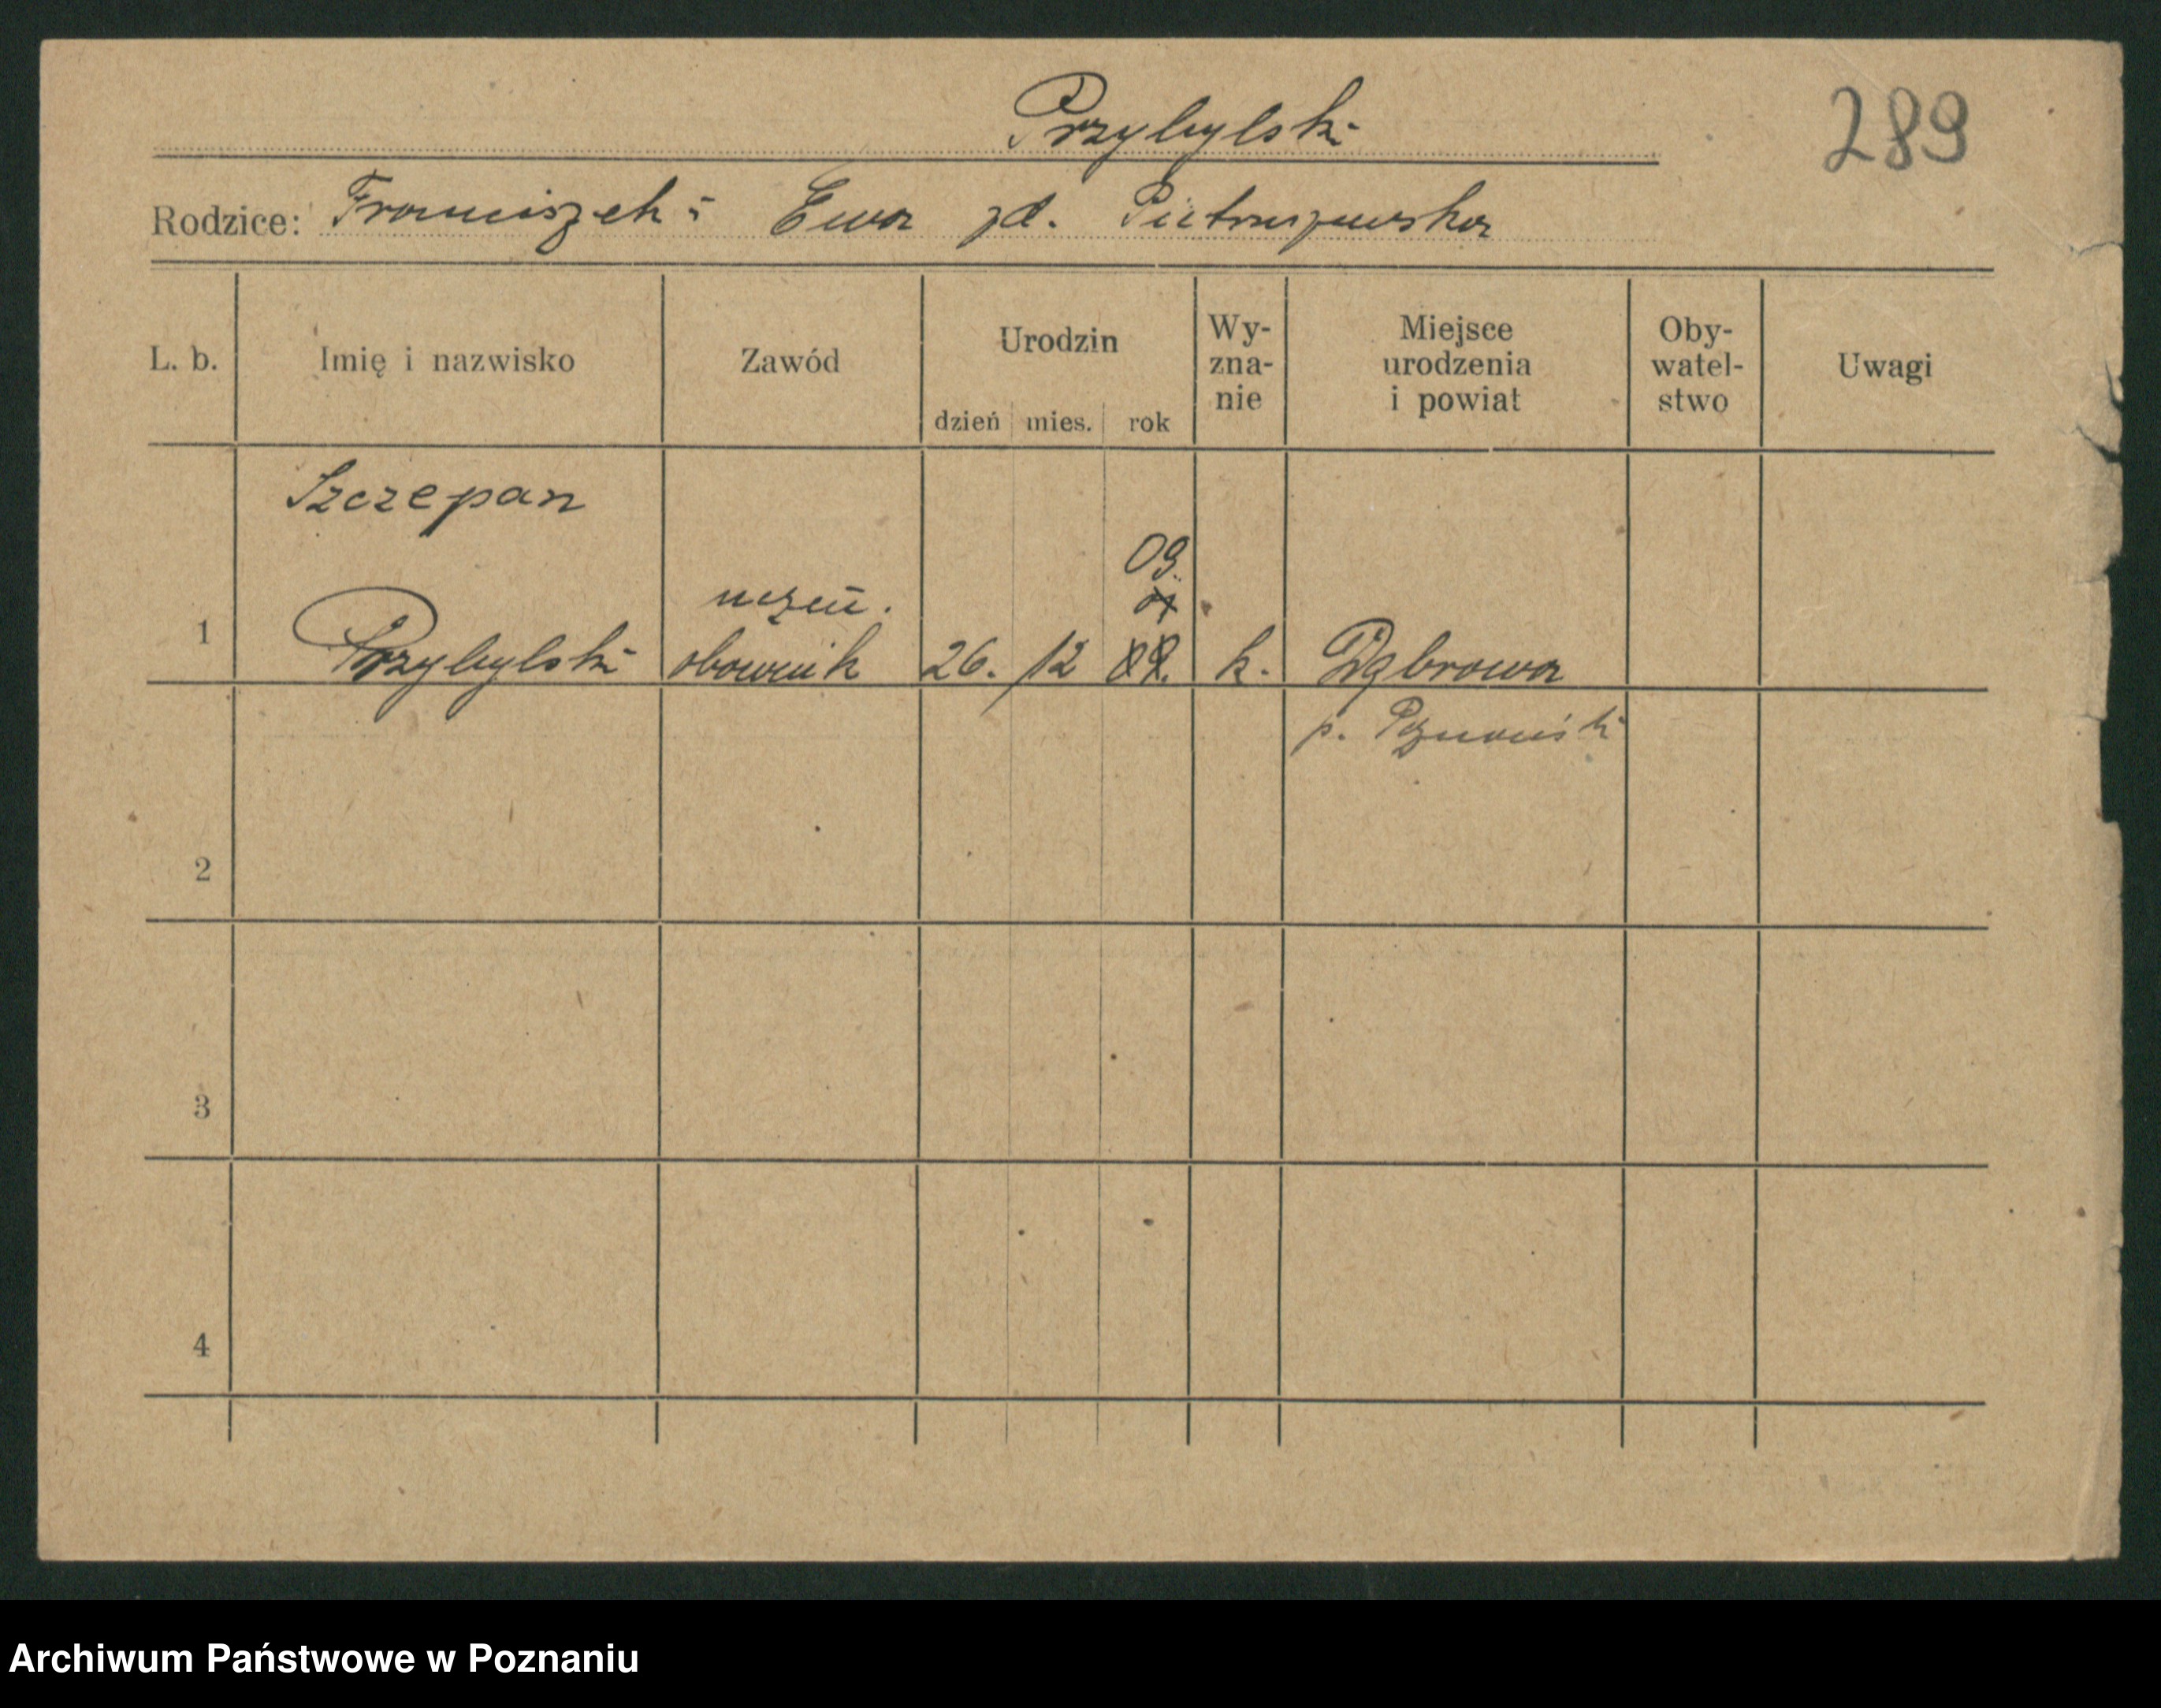 Przybylski
289
Rodzice: Franciszek i Ewa zd. Pietruszewska
L. b. Imię i nazwisko Zawód Urodzin dzień mies. rok Wy-zna-nie Miejsce urodzenia i powiat Oby-watel-stwo Uwagi
Szczepan
09.
uczeń.
1 Przybylski 26. 12 k. Dąbrowa
p. Poznański
2
3
4
Archiwum Państwowe w Poznaniu